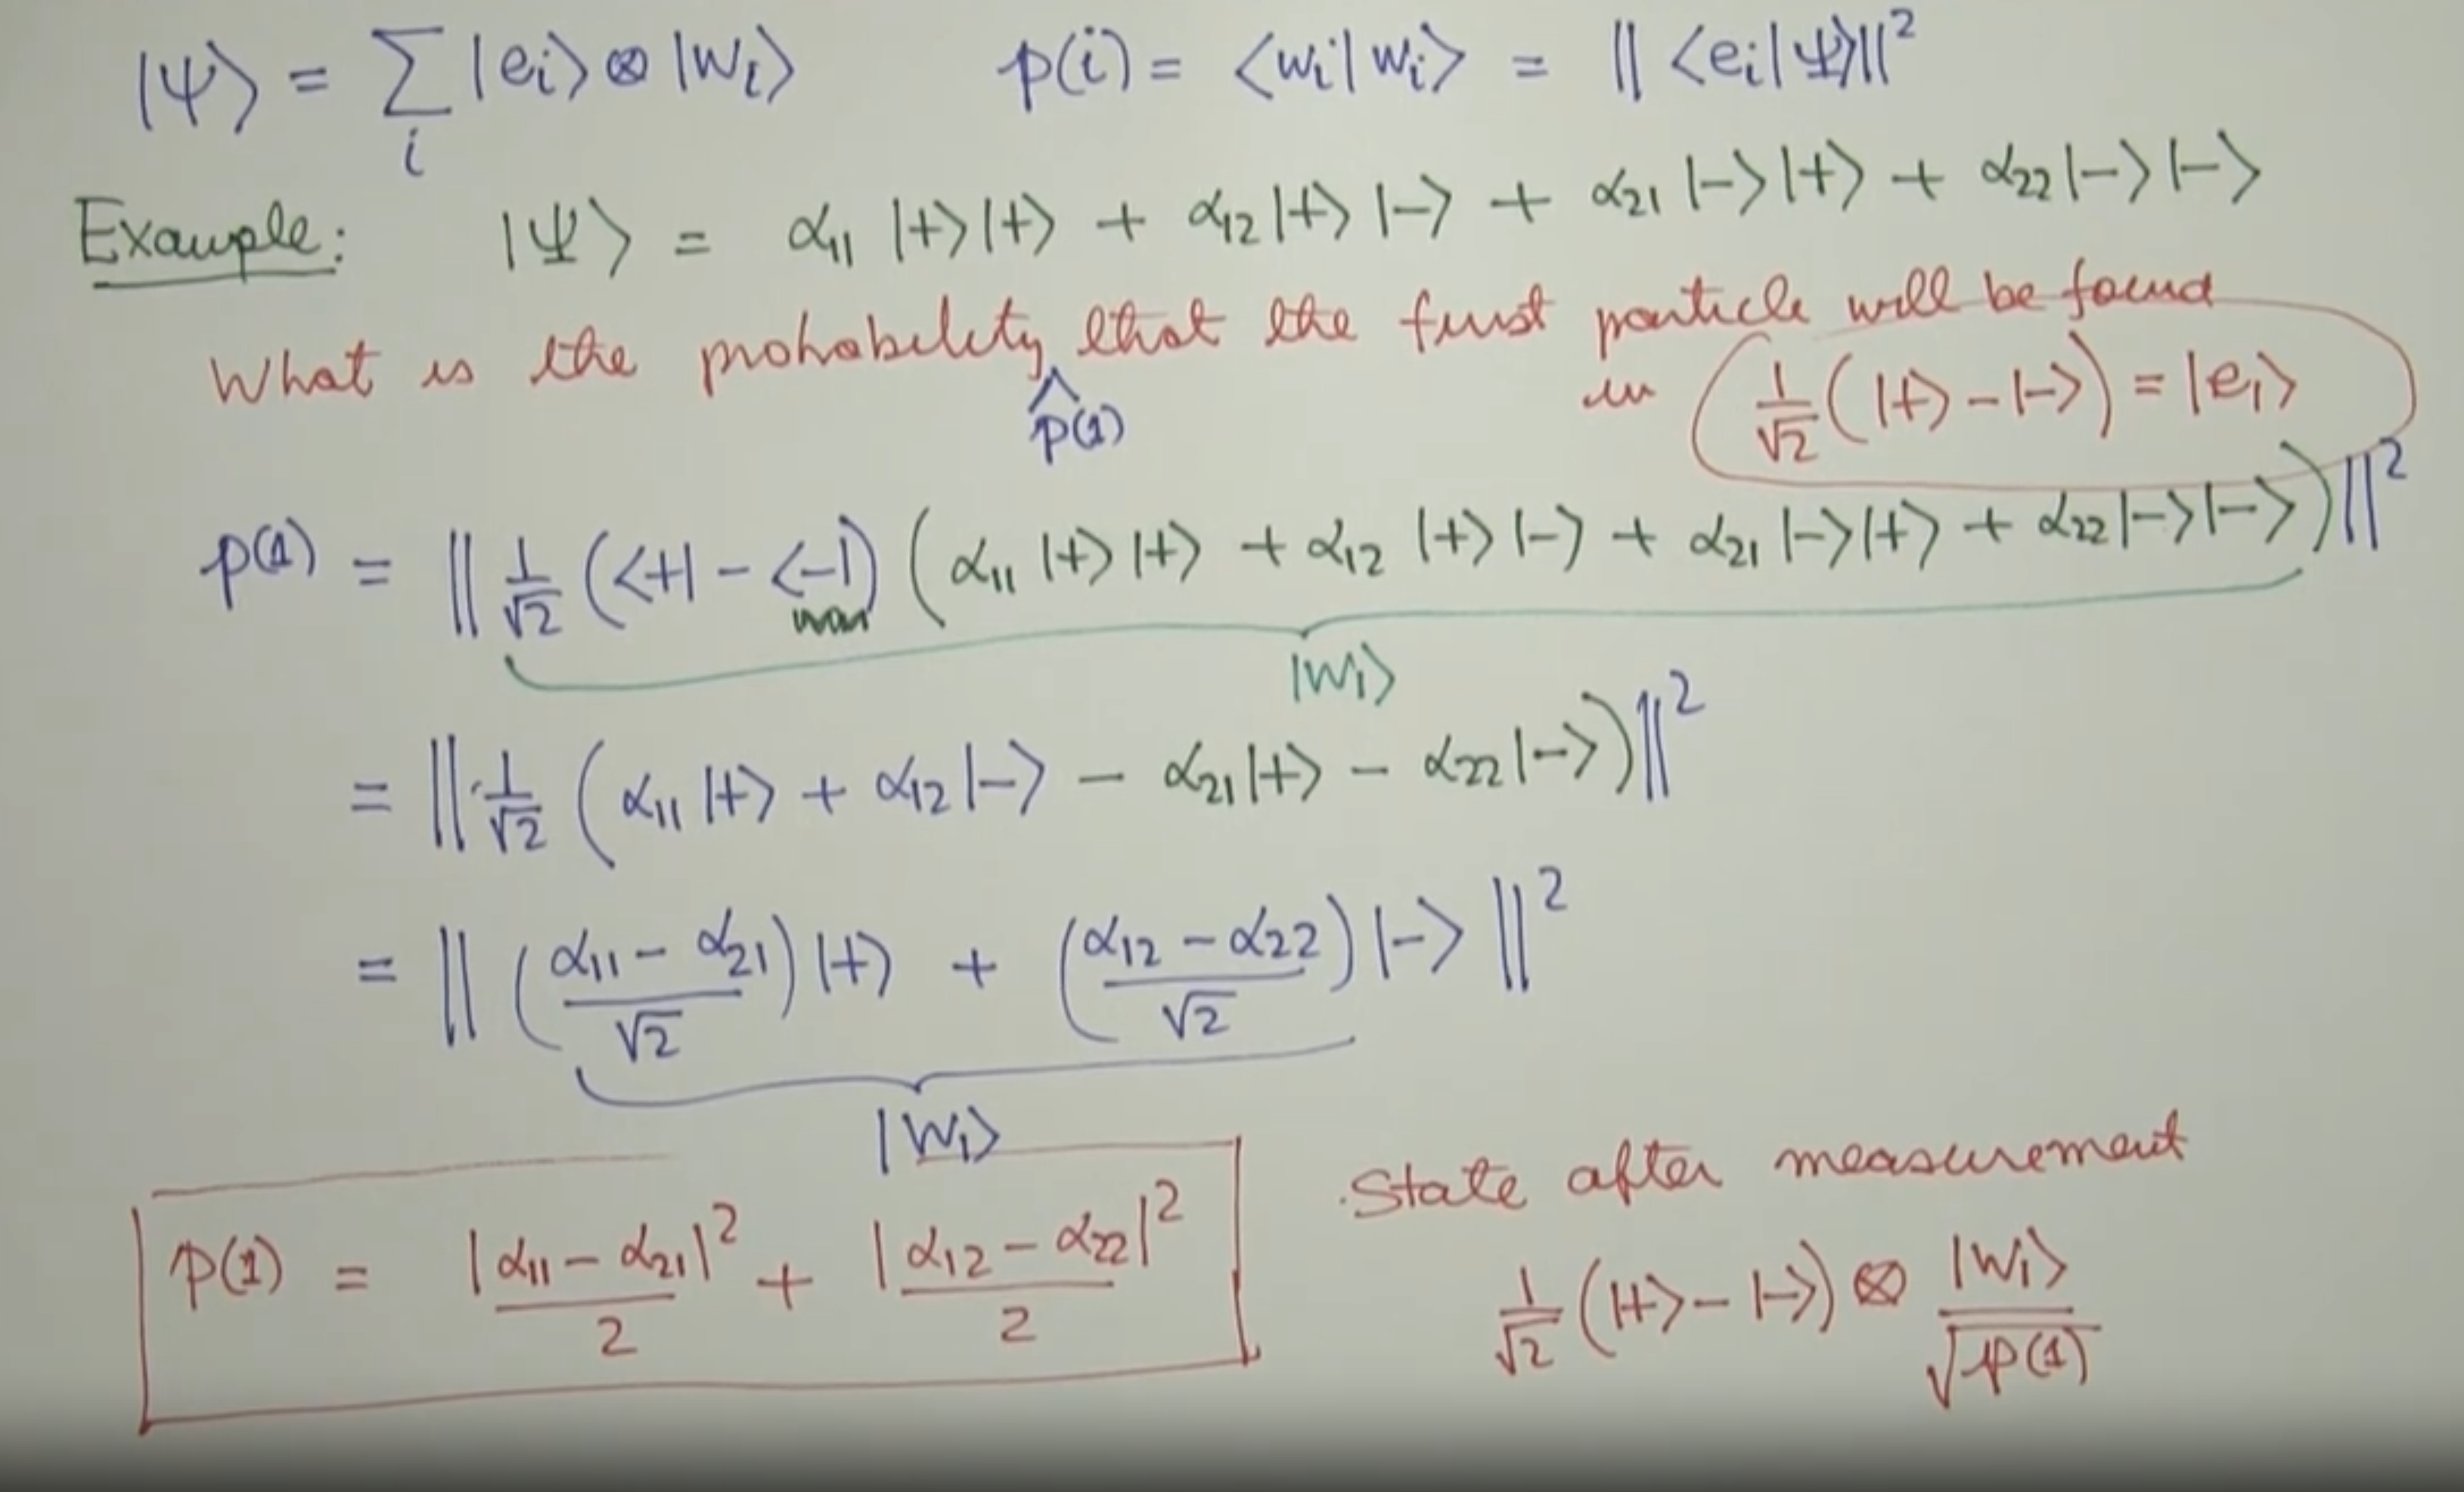 |Ψ⟩ = ∑ᵢ |eᵢ⟩ ⊗ |wᵢ⟩    p(i) = ⟨wᵢ|wᵢ⟩ = ‖⟨eᵢ|Ψ⟩‖²
Example: |Ψ⟩ = α₁₁ |+⟩|+⟩ + α₁₂ |+⟩|−⟩ + α₂₁ |−⟩|+⟩ + α₂₂ |−⟩|−⟩
What is the probability that the first particle will be found
p(1)
in 1/√2 (|+⟩ − |−⟩) = |e₁⟩
p(1) = ‖ 1/√2 (⟨+| − ⟨−|) (α₁₁ |+⟩|+⟩ + α₁₂ |+⟩|−⟩ + α₂₁ |−⟩|+⟩ + α₂₂ |−⟩|−⟩) ‖²
|w₁⟩
= ‖ 1/√2 (α₁₁ |+⟩ + α₁₂ |−⟩ − α₂₁ |+⟩ − α₂₂ |−⟩) ‖²
= ‖ ((α₁₁ − α₂₁)/√2) |+⟩ + ((α₁₂ − α₂₂)/√2) |−⟩ ‖²
|w₁⟩
p(1) = |α₁₁ − α₂₁|²/2 + |α₁₂ − α₂₂|²/2
State after measurement
1/√2 (|+⟩ − |−⟩) ⊗ |w₁⟩/√p(1)